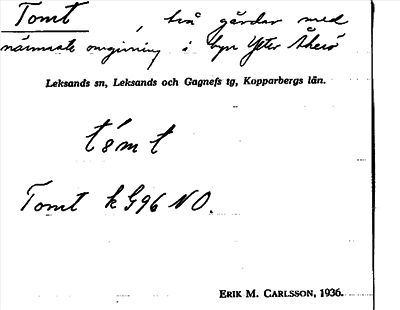 Tomt, två gårdar med
närmaste omgivning i byn Ytter Åkerö
Leksands sn, Leksands och Gagnefs tg, Kopparbergs län.
Tomt k G96 NO.
ERIK M. CARLSSON, 1936.